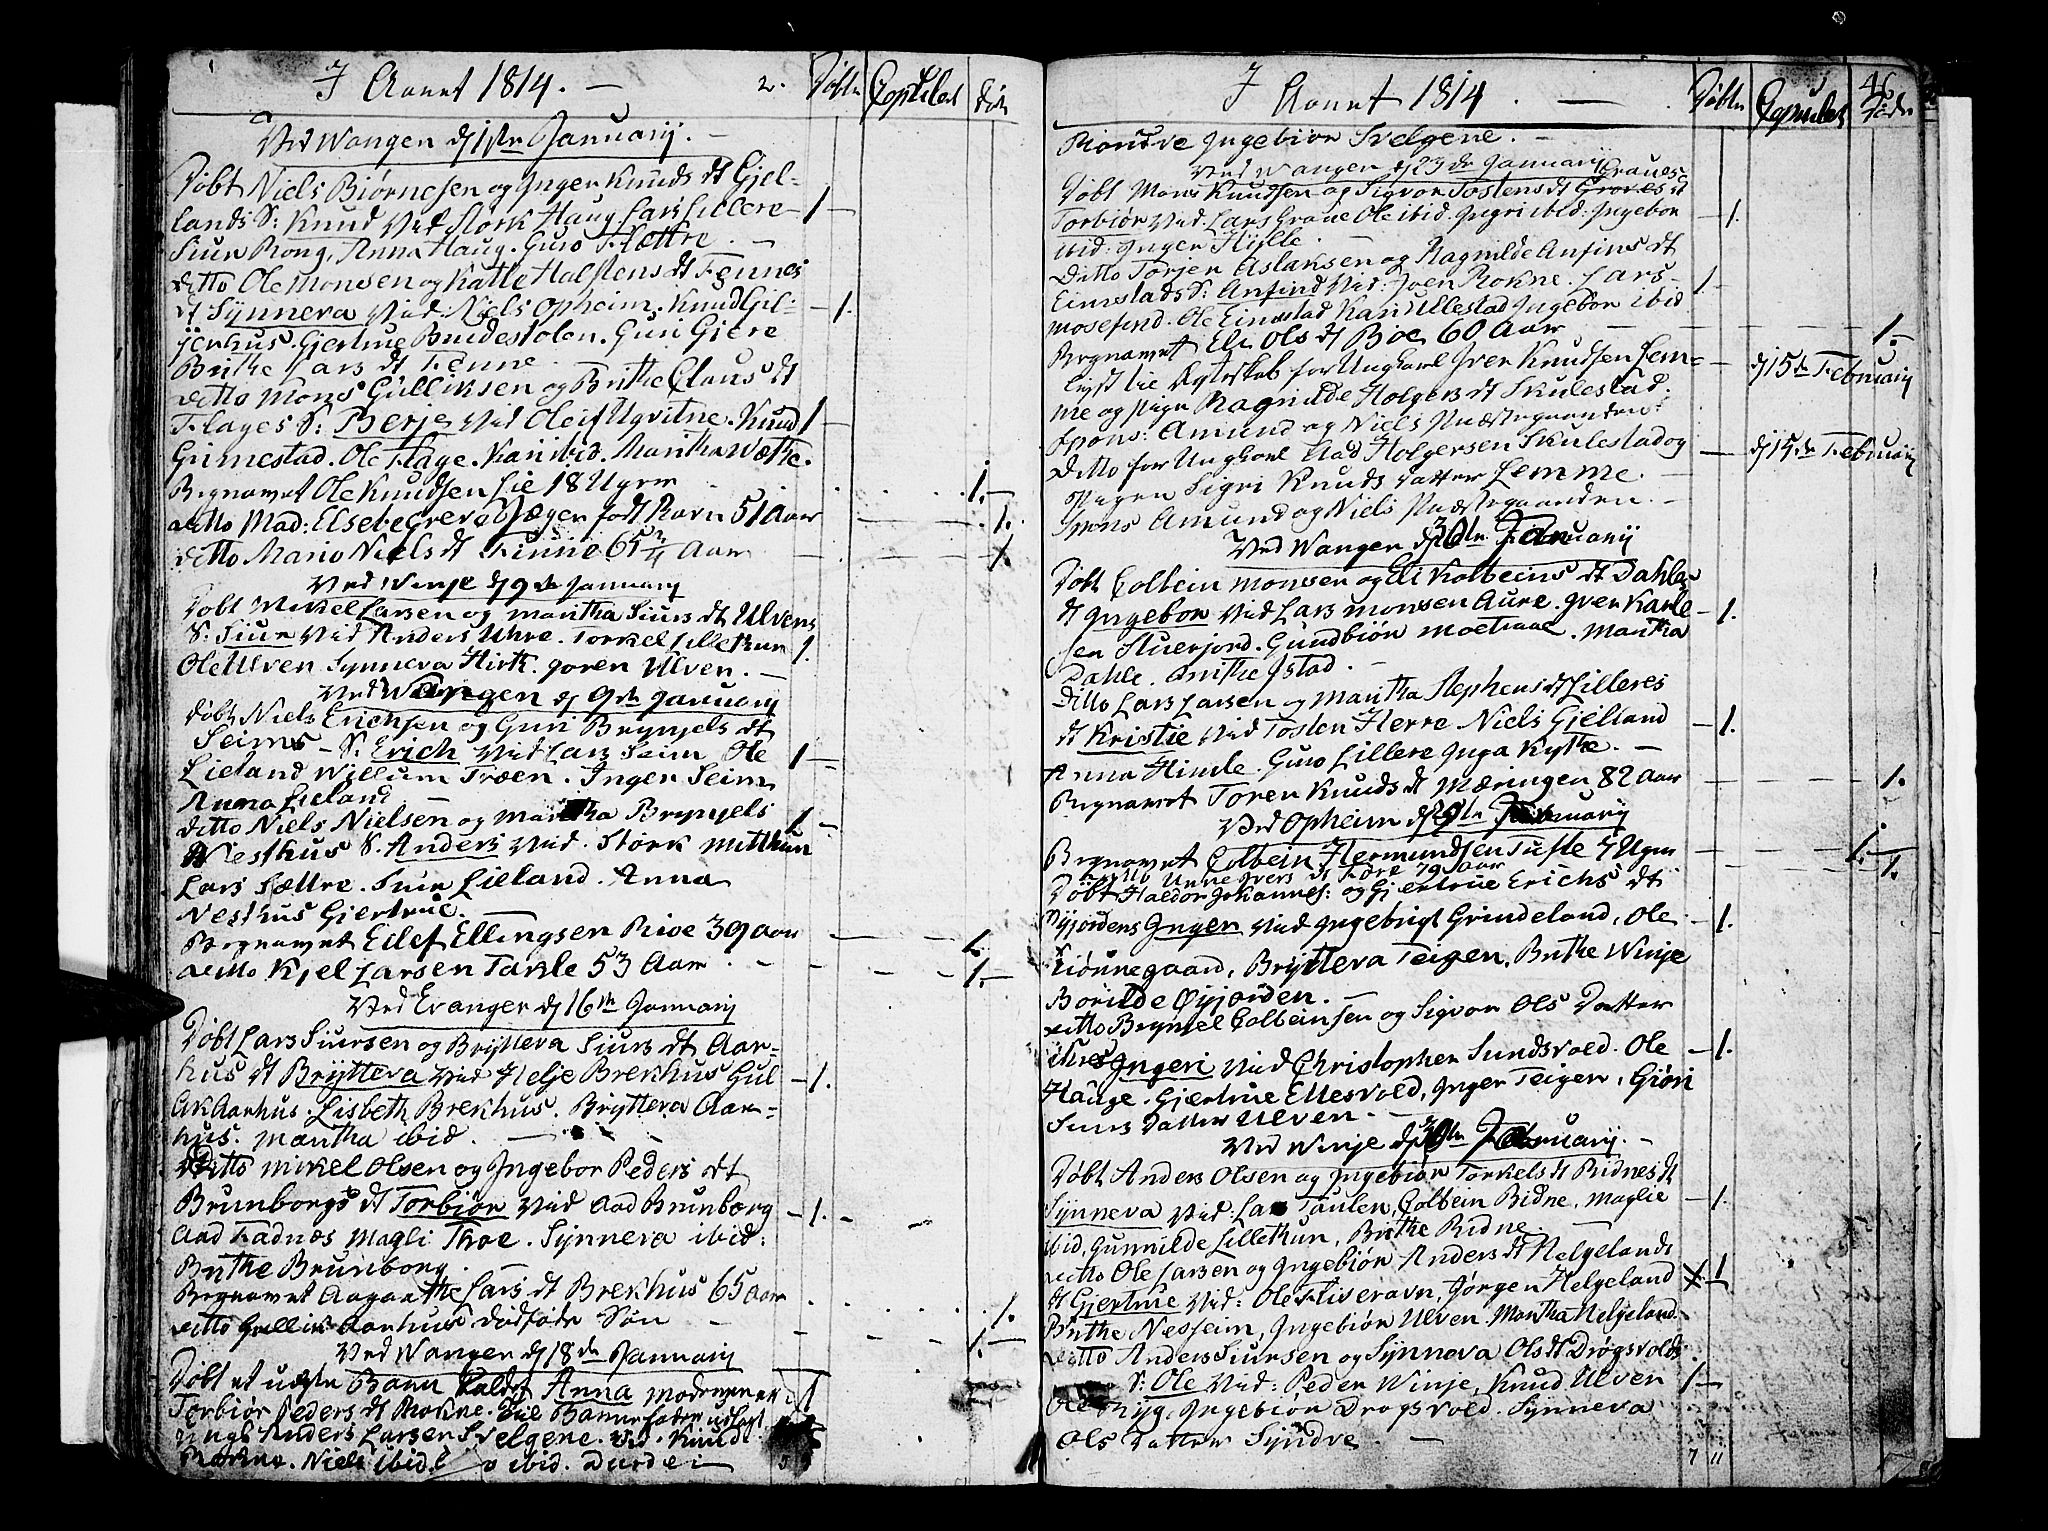 I Aaret 1814. — 2. Døbte Copuleret døde
Ved Wangen d 1ste Januarij. —
Døbt Niels Biørnesen og Inger Knuds dt Gjel-
lands S: Knud Vid. Størk Haug. Lars Lillere 1
Siur Rong, Anna Haug. Guro Sættre. —
ditto Ole Monsen og Katle Halstens dt Fennes
dt Synneva Vid: Niels Opheim. Knud Gil- 1.
jerhus. Gjertrue Bindestolen. Guri Giere
Brithe Lars dt Fenne.
ditto Mons Gulliksen og Brithe Claus dt
Flages S: Berje Vid Oleif Ugvitne. Knud 1
Grimestad. Ole Flage. Kari ibid. Maritha Wæthe.
Begravet Ole Knudsen Lie 18 Uger 1.
ditto Mad: Elsebe Greve Jæger født Ravn 51 Aar 1.
ditto Mario Niels dt Finne 65 Aar
Ved Winje d 9de Januarij
Døbt Mikel Larsen og Maritha Siurs dt Ulvens
S: Siur Vid Anders Uhre. Torkel Lillethun 1.
Ole Ulven Synneva Hirth. Joren Ulven. —
Ved Wangen d 9de Januarij
Døbt Niels Erichsen og Guri Brynjels dt
Seims — S: Erich Vid Lars Seim Ole 1
Lieland Willum Træen. Inger Seim
Anna Lieland
ditto Niels Nielsen og Maritha Brynjels 1
Nesthus S. Anders Vid. Størk Mitthun
Lars Sættre. Siur Lieland. Anna
Nesthus Giertrue.
Begravet Eilef Ellingsen Rioe 39 aar 1.
ditto Kjel Larsen Takle 53 Aar. 1.
Ved Evanger d 16de Januarij
Døbt Lars Siursen og Bryttera Siurs dt Aar-
hus dt Bryttera Vid Helje Brekhus Gul 1.
Ak Aarhus. Lisbeth Brekhus. Bryttera Aar-
hus. Martha ibid.
Ditto Mikel Olsen og Ingebor Peders dt
Brunborgs dt Torbiør Vid Aad Brunborg 1.
Aad Fadnæs Magli Thoe. Synneva ibid:
Brithe Brunborg.
Begravet Aagaathe Lars dt Brekhus 65 Aar 1.
ditto Gullik Aarhus dødføde Søn 1.
Ved Wangen d 18de Januarij
Døbt et uægte Barn kaldet Anna Moderen er 1
Torbiør Peders dt Rokne. til Barnefader udlagt
Ungk Anders Larsen Svelgene. Vid. Knud
Rokne. Niels ibid. ibid. Durdei
I Aaret 1814. — Døbte Copuleret 46 Døde
Røndve Ingebiør Svelgene. —
Ved Wangen d 23de Januarij
Døbt Mons Knudsen og Sigvor Tostens dt Groves dt Graues
Torbiør Vid. Lars Graue Ole ibid. Ingri ibid: Ingebor 1.
ibid: Inger Hylle.
Ditto Torjer Aslaksen og Ragnilde Anfins dt
Eimstads S: Anfind Vid: Joen Rokne. Lars 1
Mosefind. Ole Eimstad Kari Ullestad Ingebor ibid
Begravet Eli Ols dt Boe 60 Aar 1.
Lyst til Egteskab for Ungkarl Iver Knudsen Lem- d 15de Februarij
me og Pige Ragnilde Holgers dt Skulestad.
Spons: Amund og Niels Næstegaarden.
Ditto for Ungkarl Aad Holgersen Skulestad og d 15de Februarij
Pigen Sigri Knuds datter Lemme.
Spons Amund og Niels Næstegaarden. —
Ved Wangen d 30te Januarij
Døbt Colbein Monsen og Eli Kolbeins dt Dahle
dt Ingebor Vid Lars Monsen Aure. Iver Karle 1.
sen Stuerjord. Gundbiør Moetuae. Martha
Dahle. Brithe Istad.
Ditto Lars Larsen og Maritha Stephens dt Lilleres
dt Kristie Vid Tosten Herre Niels Gjelland 1.
Anna Himle. Guro Lillere Inga Kythe. —
Begravet Toren Knuds dt Mæringen 82 Aar 1.
Ved Opheim d Februarij
Begravet Colbein Hermundsen Tufte 7 Uger 1.
ditto Unne Ivers dt Fære 79 Aar 1.
Døbt Haldor Johannes: og Gjertrue Erichs dt
Øyjordens Inger Vid Ingebrigt Grindeland, Ole 1.
Kiønnegaard, Bryttera Teigen, Brithe Winje
Borilde Øyjorden. —
ditto Brynjel Colbeinsen og Sigvor Ols Datter
Ingeri Vid Christopher Sundsvold. Ole 1.
Hauge. Gjertrue Ettesvold, Inger Teigen, Giøri
Siurs datter Ulven. —
Ved Winje d Februarij. —
Døbt Anders Olsen og Ingebiør Torkels dt Ridnes dt
Synneva Vid: Lars Taulen, Colbein Bidne. Maglie 1.
ibid, Gunnilde Lillethun, Brithe Bidne.
ditto Ole Larsen og Ingebiør Anders dt Helgelands
dt Gjertrue Vid: Ole Fliseravn, Jørgen Helgeland 1
Brithe Nesheim, Ingebiør Ulven. Martha Helgeland.
ditto Anders Siursen og Synneva Ols dt Drøgsvolds
S: Ole Vid: Peder Winje, Knud Ulven 1
Ole Ryg, Ingebiør Drøgsvold. Synneva
Ols Datter Syndve. —
7 11